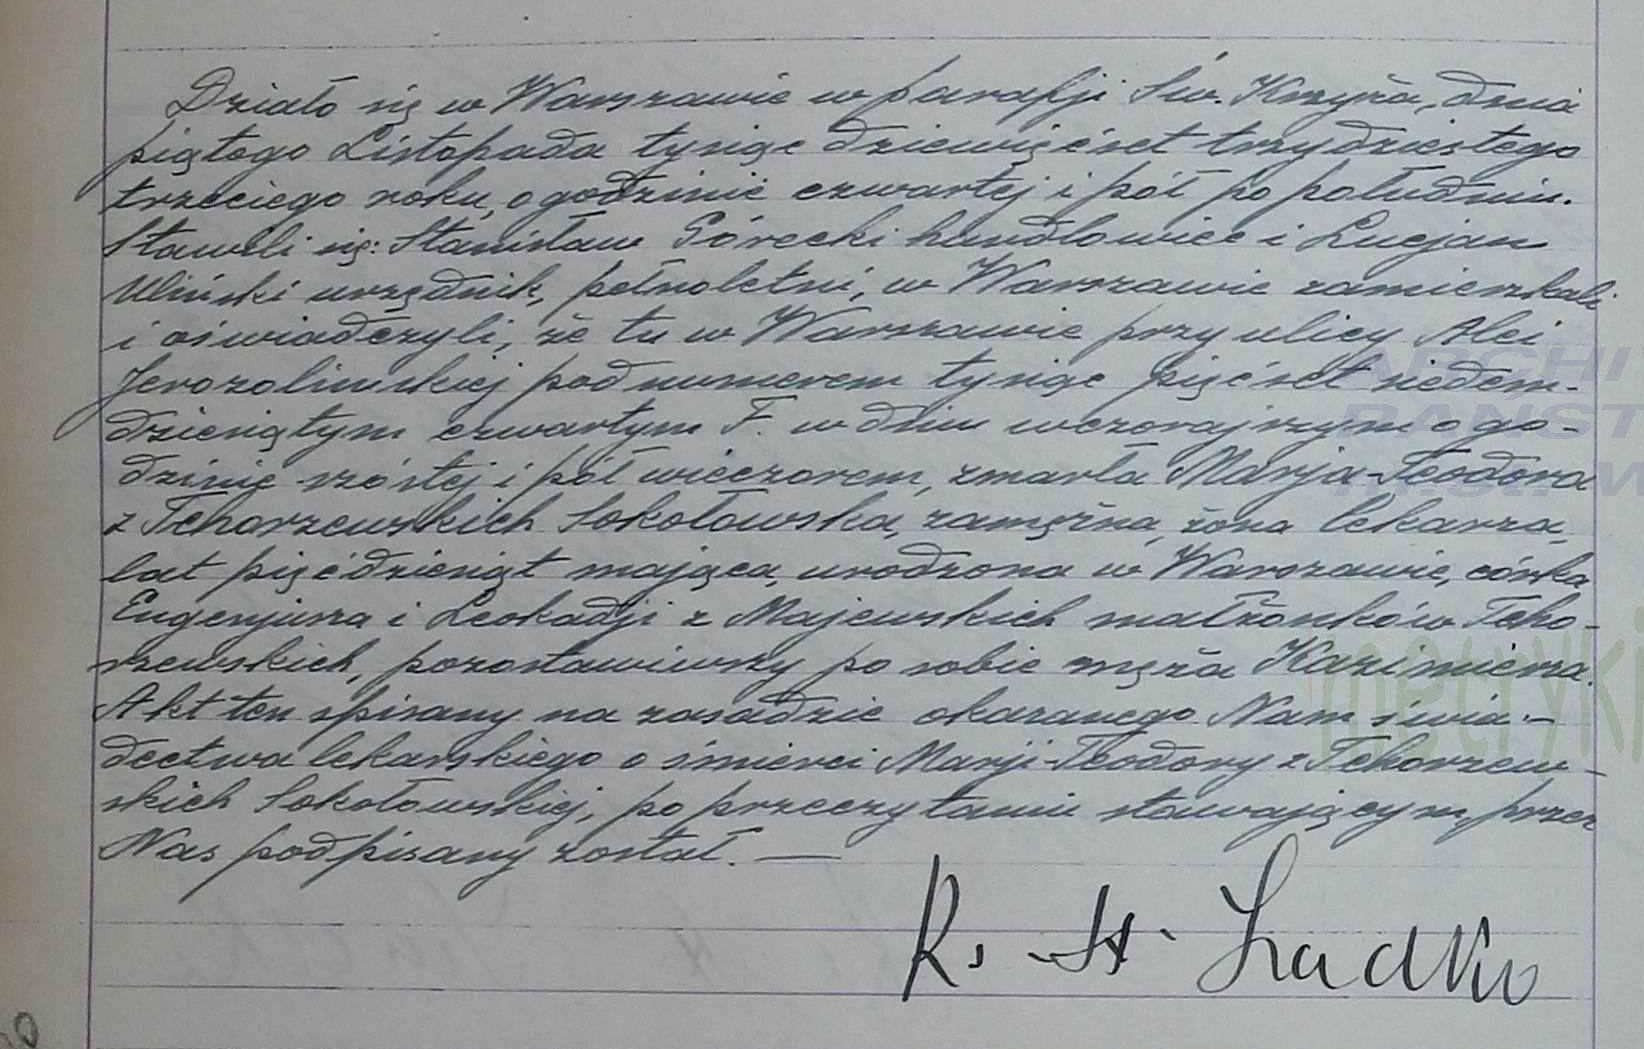 Działo się w Warszawie w parafji Św. Krzyża, dnia
piątego Listopada tysiąc dziewięćset trzydziestego
trzeciego roku, o godzinie czwartej i pół po południu.
Stawili się: Stanisław Górecki handlowiec i Lucjan
Uliński urzędnik, pełnoletni, w Warszawie zamieszkali
i oświadczyli, że tu w Warszawie przy ulicy Alei
Jerozolimskiej pod numerem tysiąc pięćset siedem-
dziesiątym czwartym F. w dniu wczorajszym o go-
dzinie szóstej i pół wieczorem, zmarła Marja-Teodora
z Tchorzewskich Sokołowska, zamężna, żona lekarza,
lat pięćdziesiąt mająca, urodzona w Warszawie, córka
Eugenjusza i Leokadji z Majewskich małżonków Tcho-
rzewskich, pozostawiwszy po sobie męża Kazimierza.
Akt ten spisany na zasadzie okazanego Nam świa-
dectwa lekarskiego o śmierci Marji-Teodory z Tchorzew-
skich Sokołowskiej, po przeczytaniu stawającym, przez
Nas podpisany został. —
Ks. St.
ARCHI
PAŃST
metryki